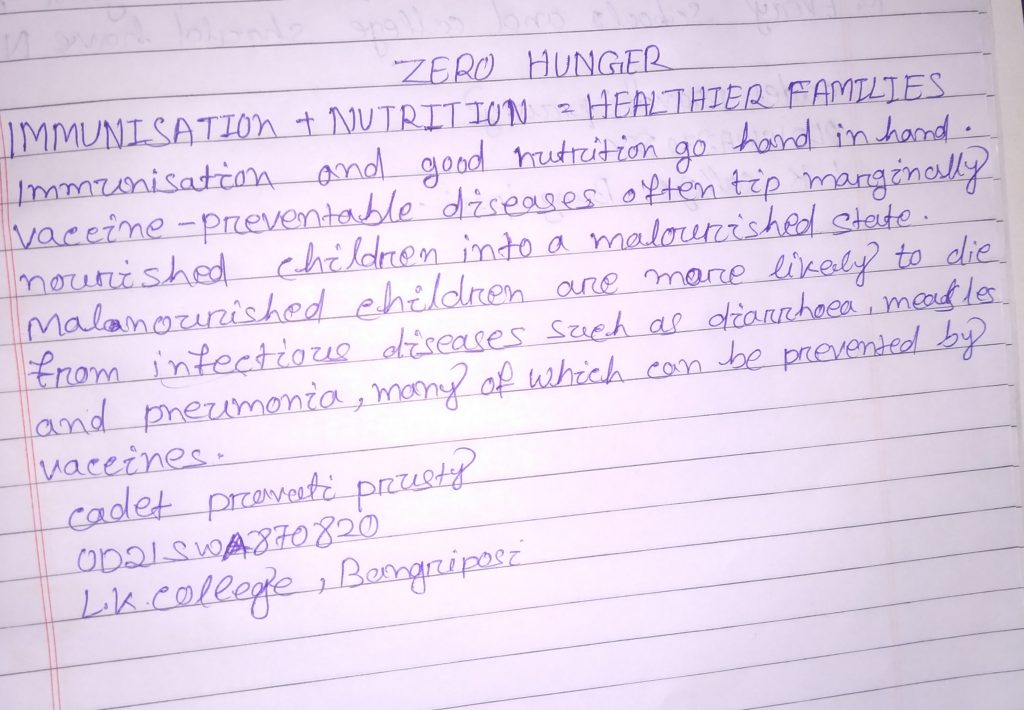 ZERO HUNGER
IMMUNISATION + NUTRITION = HEALTHIER FAMILIES
Immunisation and good nutrition go hand in hand.
vaccine-preventable diseases often tip marginally
nourished children into a malourished state.
Malanourished children are more likely to die
from infectious diseases such as diarrhoea, measles
and pneumonia, many of which can be prevented by
vaccines.
cadet pravati prusty
OD21SWA870820
L.K. college, Bangriposi